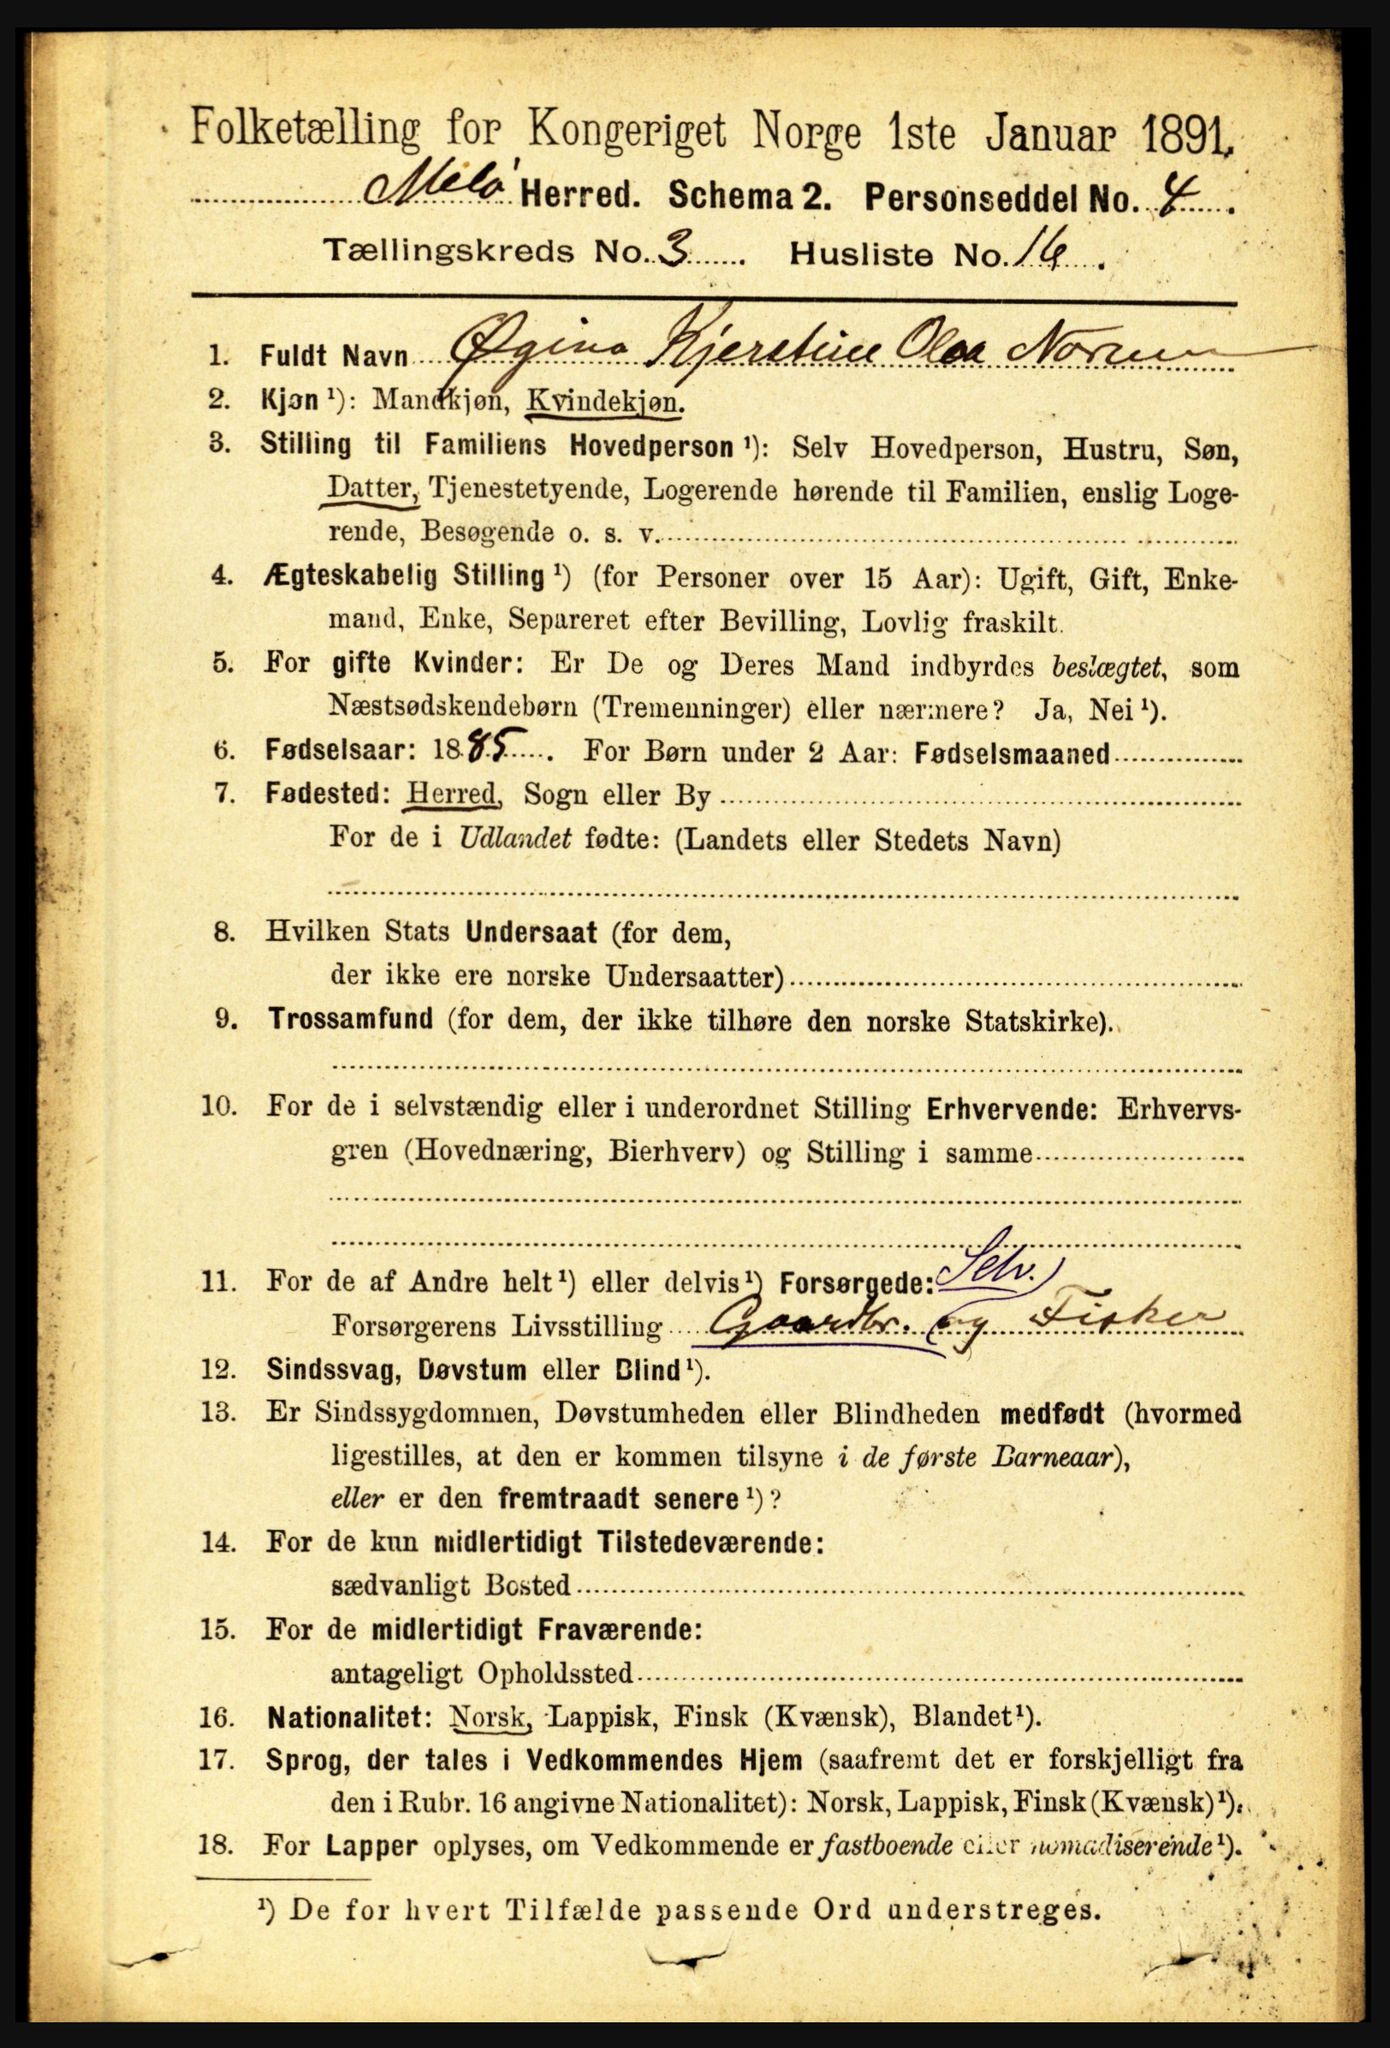 Folketælling for Kongeriget Norge 1ste Januar 1891.
Melø Herred. Schema 2. Personseddel No. 4.
Tællingskreds No. 3. Husliste No. 16.
1. Fuldt Navn Øgina Kjerstine
2. Kjøn ¹): Mandkjøn, Kvindekjøn.
3. Stilling til Familiens Hovedperson ¹): Selv Hovedperson, Hustru, Søn,
Datter, Tjenestetyende, Logerende hørende til Familien, enslig Loge-
rende, Besøgende o. s. v.
4. Ægteskabelig Stilling ¹) (for Personer over 15 Aar): Ugift, Gift, Enke-
mand, Enke, Separeret efter Bevilling, Lovlig fraskilt.
5. For gifte Kvinder: Er De og Deres Mand indbyrdes beslægtet, som
Næstsødskendebørn (Tremenninger) eller nærmere? Ja, Nei ¹).
6. Fødselsaar: 1885. For Børn under 2 Aar: Fødselsmaaned
7. Fødested: Herred, Sogn eller By
For de i Udlandet fødte: (Landets eller Stedets Navn)
8. Hvilken Stats Undersaat (for dem,
der ikke ere norske Undersaatter)
9. Trossamfund (for dem, der ikke tilhøre den norske Statskirke).
10. For de i selvstændig eller i underordnet Stilling Erhvervende: Erhvervs-
gren (Hovednæring, Bierhverv) og Stilling i samme
11. For de af Andre helt ¹) eller delvis ¹) Forsørgede: Selv.
Forsørgerens Livsstilling Gaardbr. og Fisker
12. Sindssvag, Døvstum eller Blind ¹).
13. Er Sindssygdommen, Døvstumheden eller Blindheden medfødt (hvormed
ligestilles, at den er kommen tilsyne i de første Barneaar),
eller er den fremtraadt senere ¹)?
14. For de kun midlertidigt Tilstedeværende:
sædvanligt Bosted
15. For de midlertidigt Fraværende:
antageligt Opholdssted
16. Nationalitet: Norsk, Lappisk, Finsk (Kvænsk), Blandet ¹).
17. Sprog, der tales i Vedkommendes Hjem (saafremt det er forskjelligt fra
den i Rubr. 16 angivne Nationalitet): Norsk, Lappisk, Finsk (Kvænsk) ¹).
18. For Lapper oplyses, om Vedkommende er fastboende eller nomadiserende ¹).
¹) De for hvert Tilfælde passende Ord understreges.